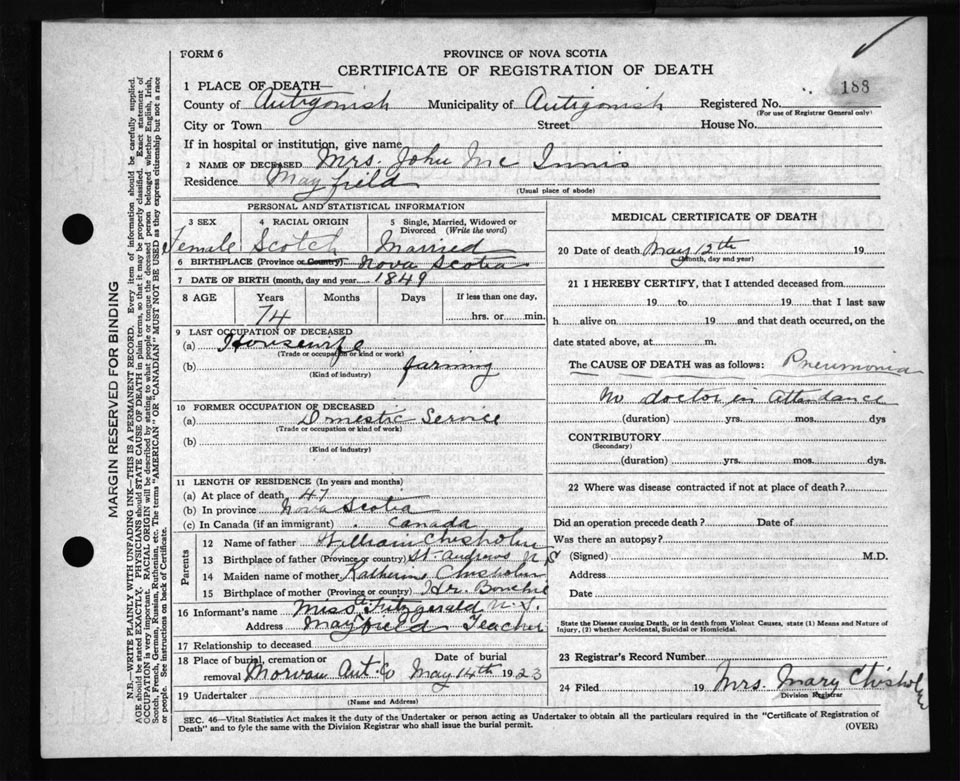 FORM 6
PROVINCE OF NOVA SCOTIA
CERTIFICATE OF REGISTRATION OF DEATH
188
1 PLACE OF DEATH—
County of Antigonish Municipality of Antigonish Registered No.
(For use of Registrar General only)
City or Town Street House No.
If in hospital or institution, give name
2 NAME OF DECEASED Mrs. John Mc Innis
Residence Mayfield
(Usual place of abode)
PERSONAL AND STATISTICAL INFORMATION
3 SEX 4 RACIAL ORIGIN 5 Single, Married, Widowed or Divorced (Write the word)
Female Scotch Married
6 BIRTHPLACE (Province or Country) Nova Scotia
7 DATE OF BIRTH (month, day and year) 1849
8 AGE Years Months Days If less than one day,
74 hrs. or min.
9 LAST OCCUPATION OF DECEASED
(a) Housewife
(Trade or occupation or kind or work)
(b) farming
(Kind of industry)
10 FORMER OCCUPATION OF DECEASED
(a) Dmestic Service
(Trade or occupation or kind of work)
(b)
(Kind of industry)
11 LENGTH OF RESIDENCE (In years and months)
(a) At place of death 47
(b) In province Nova Scotia
(c) In Canada (if an immigrant) Canada
Parents
12 Name of father William Chisholm
13 Birthplace of father (Province or Country) St. Andrews N S
14 Maiden name of mother Katherine Chisholm
15 Birthplace of mother (Province or Country) Hr. Bouchie
16 Informant's name Miss Fitzgerald N.S.
Address Mayfield Teacher
17 Relationship to deceased
18 Place of burial, cremation or removal Morvan Ant. Co Date of burial May 14th 1923
19 Undertaker
(Name and Address)
MEDICAL CERTIFICATE OF DEATH
20 Date of death May 12th 19
(Month, day and year)
21 I HEREBY CERTIFY, that I attended deceased from
19 to 19 that I last saw
h alive on 19 and that death occurred, on the
date stated above, at m.
The CAUSE OF DEATH was as follows: Pneumonia
No doctor in attendance
(duration) yrs. mos. dys
CONTRIBUTORY
(Secondary)
(duration) yrs. mos. dys.
22 Where was disease contracted if not at place of death?
Did an operation precede death? Date of
Was there an autopsy?
(Signed) M.D.
Address
Date
State the Disease causing Death, or in death from Violent Causes, state (1) Means and Nature of
Injury, (2) whether Accidental, Suicidal or Homicidal.
23 Registrar's Record Number
24 Filed 19 Mrs. Mary Chisholm
Division Registrar
SEC. 46—Vital Statistics Act makes it the duty of the Undertaker or person acting as Undertaker to obtain all the particulars required in the "Certificate of Registration of
Death" and to fyle the same with the Division Registrar who shall issue the burial permit.
(OVER)
MARGIN RESERVED FOR BINDING
N.B.—WRITE PLAINLY WITH UNFADING INK—THIS IS A PERMANENT RECORD. Every item of information should be carefully supplied.
AGE should be stated EXACTLY. PHYSICIANS should STATE CAUSE OF DEATH in plain terms, so that it may be properly classified. Exact statement of
OCCUPATION is very important. RACIAL ORIGIN will be described by stating to what people or tongue the deceased person belonged whether English, Irish,
Scotch, French, German, Russian, Ruthenian, etc. The terms "AMERICAN" OR "CANADIAN" MUST NOT BE USED as they express citizenship but not a race
or people. See instructions on back of Certificate.